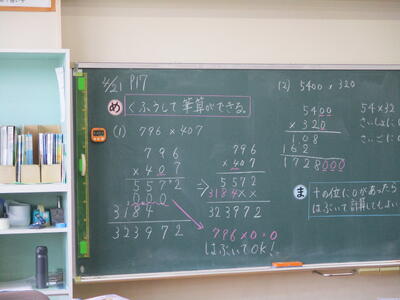 4/21 P17
め くふうして筆算ができる。
(1) 796 × 407
796
×407
5572
000
3184
323972
796
×407
5572
3184××
323972
796×0=0
はぶいてOK!
(2) 5400 × 320
5400
×320
108
162
1728000
54×32
さいしょに0
さいごに0
ま 十の位に0があったら
はぶいて計算してもよい